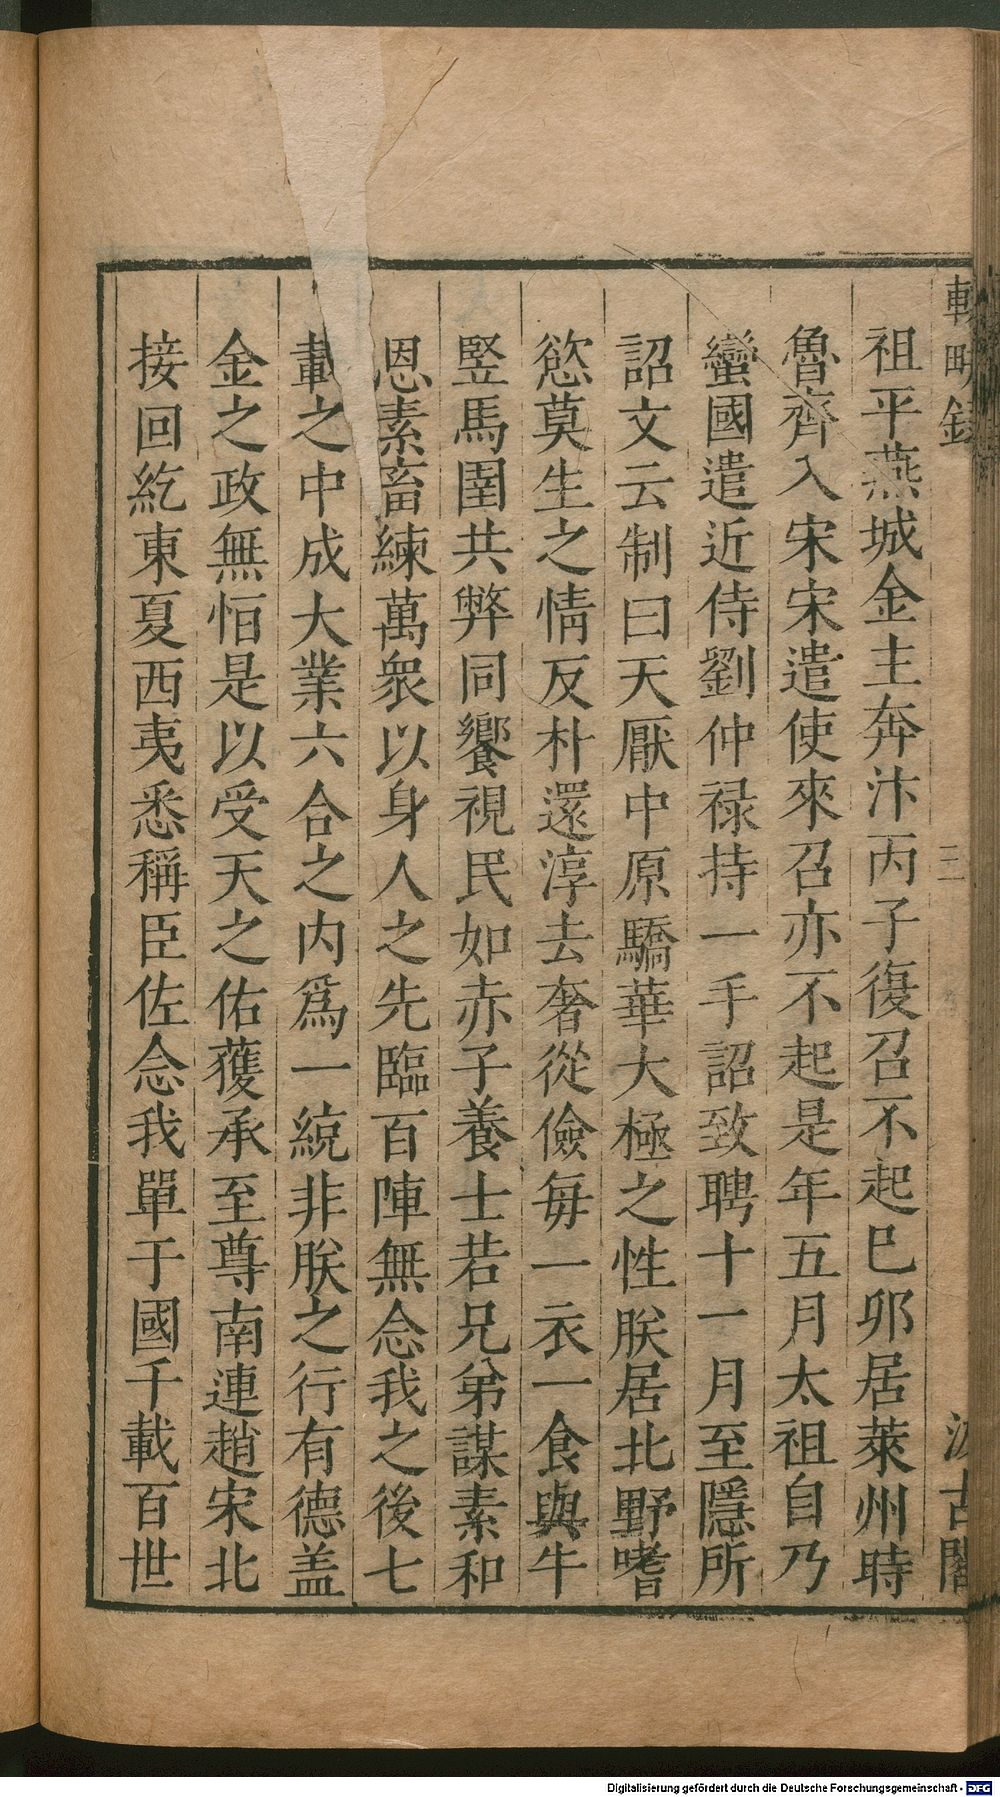 輟畊錄 二 汲古閣
祖平燕城金主奔汴丙子復召不起巳卯居萊州時
魯齊入宋宋遣使來召亦不起是年五月太祖自乃
蠻國遣近侍劉仲禄持一手詔致聘十一月至隱所
詔文云制曰天厭中原驕華大極之性朕居北野嗜
慾莫生之情反朴還淳去奢從儉每一衣一食與牛
竪馬圉共弊同饗視民如赤子養士若兄弟謀素和
恩素畜練萬衆以身人之先臨百陣無念我之後七
載之中成大業六合之內爲一統非朕之行有德盖
金之政無恒是以受天之佑獲承至尊南連趙宋北
接回紇東夏西夷悉稱臣佐念我單于國千載百世
Digitalisierung gefördert durch die Deutsche Forschungsgemeinschaft - DFG